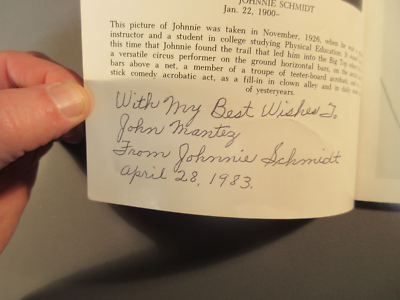 JOHNNIE SCHMIDT
Jan. 22, 1900-
This picture of Johnnie was taken in November, 1926, when he was
instructor and a student in college studying Physical Education. It was
this time that Johnnie found the trail that led him into the Big Top
a versatile circus performer on the ground horizontal bars, on the
bars above a net, a member of a troupe of teeter-board acrobats, and
stick comedy acrobatic act, as a fill-in in clown alley and in daily
of yesteryears.
With My Best Wishes To
John Mantez
From Johnnie Schmidt
April 28, 1983.